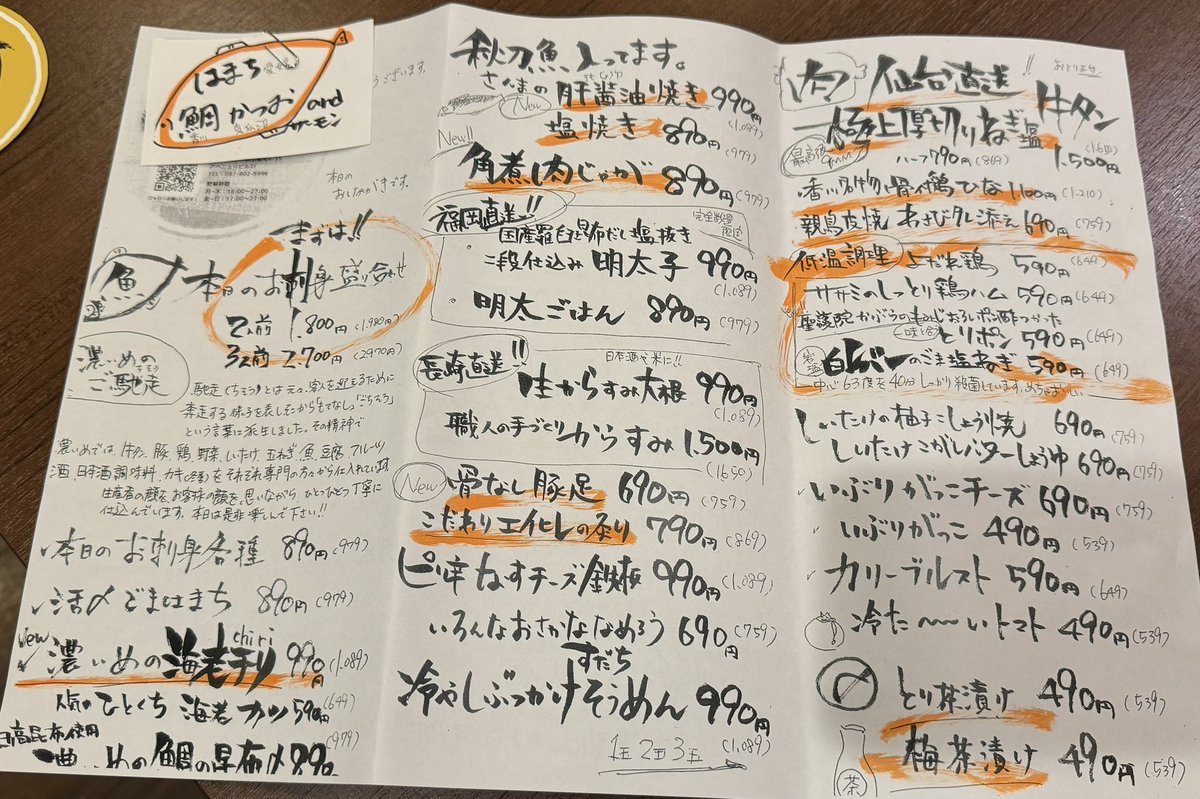 はまち 愛媛
鯛 かつお and
サーモン
うございます。
TEL 087-802-5996
営業時間
月-木・18:00〜27:00
金-日・17:00〜27:00
本日の
おしながきです。
まずは!!
魚 本日のお刺身盛り合せ
2人前 1.800円 (1.980円)
3人前 2.700円 (2970円)
濃いめの
ご馳走
馳走(ちそう)とは元々、客人を迎えるために
奔走する様子を表したことからもてなし「ごちそう」
という言葉に派生しました。その精神で
濃いめでは 牛タン、豚、鶏、野菜、しいたけ、玉ねぎ、魚、豆腐、フルーツ
酒、日本酒、調味料、カキ(冬季)をそれぞれ専門の方から仕入れています
生産者の顔を、お客様の顔を思いながら、ひとつひとつ丁寧に
仕込んでいます。本日は是非楽しんで下さい!!
本日のお刺身各種 890円 (979)
活〆ごまはまち 890円 (979)
New
濃いめの海老チリ chiri 990円 (1.089)
人気の ひとくち 海老カツ 590円 (649)
日高昆布使用
めの鯛の昆布〆 890 (979)
秋刀魚入ってます。
さんまの New 肝醤油焼き 990円 (1.089)
New!! 塩焼き 890円 (979)
角煮肉じゃが 890円 (979)
福岡直送!!
完全数量限定
国産羅臼昆布だし塩抜き
二段仕込み 明太子 990円 (1.089)
明太ごはん 890円 (979)
長崎直送!!
日本酒や米に!!
生からすみ大根 990円 (1.089)
職人の手づくり からすみ 1.500円 (1650)
New 骨なし豚足 690円 (759)
こだわりエイヒレの炙り 790円 (869)
ピリ辛なすチーズ鉄板 990円 (1.089)
いろんなおさかななめろう 690円 (759)
すだち
冷やしぶっかけそうめん 990円 (1.089)
1玉 2玉 3玉
肉 仙台直送!!
牛タン
極上厚切りねぎ塩 1.500円 (1.650)
ハーフ790円 (869)
香川名物 骨付鶏 ひな 1.100円 (1.210)
親鳥皮焼 わさびタレ添え 690円 (759)
低温調理 よだれ鶏 590円 (649)
ササミのしっとり鶏ハム 590円 (649)
聖護院かぶらの
とりポン 590円 (649)
白レバーのごま塩ねぎ 590円 (649)
中心63度を40分しっかり殺菌しています。めちゃおいしい
しいたけの柚子こしょう焼 690円 (759)
しいたけこがしバターしょうゆ 690円 (759)
いぶりがっこチーズ 690円 (759)
いぶりがっこ 490円 (539)
カリーブルスト 590円 (649)
冷た〜〜いトマト 490円 (539)
とり茶漬け 490円 (539)
茶
梅茶漬け 490円 (539)